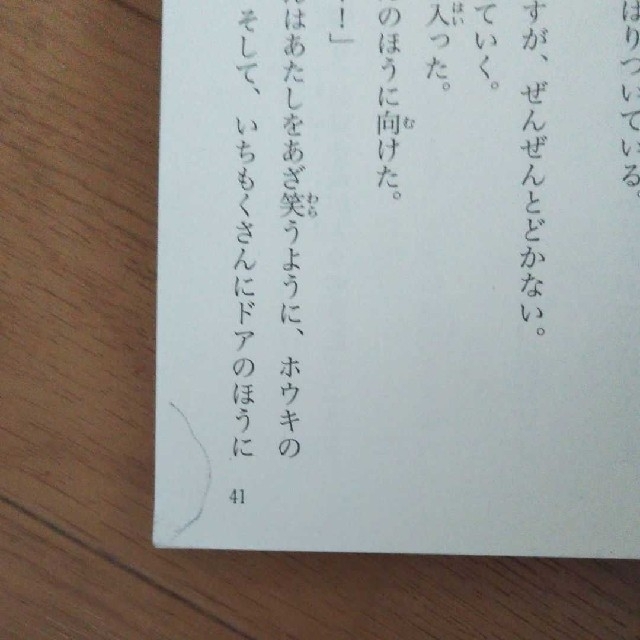 はりついている。
すが、ぜんぜんとどかない。
ていく。
入った。
のほうに向けた。
！」
はあたしをあざ笑うように、ホウキの
そして、いちもくさんにドアのほうに
41